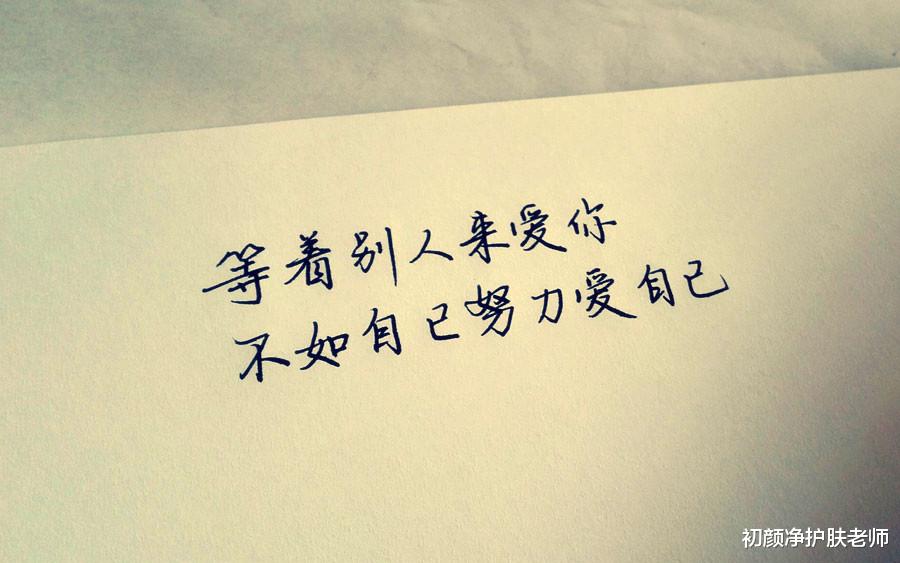 等着别人来爱你
不如自己努力爱自己
初颜净护肤老师